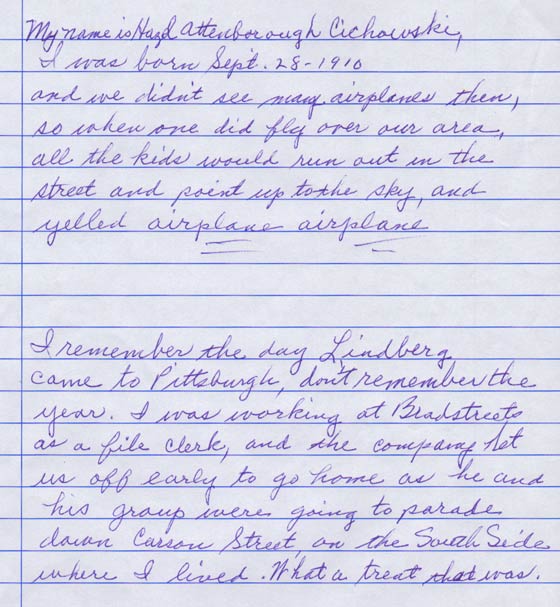 My name is Hazel Attenborough Cichowski,
I was born Sept. 28-1910
and we didn't see many airplanes then,
so when one did fly over our area,
all the kids would run out in the
street and point up to the sky, and
yelled airplane airplane
I remember the day Lindberg
came to Pittsburgh, don't remember the
year. I was working at Bradstreets
as a file clerk, and the company let
us off early to go home as he and
his group were going to parade
down Carson Street, on the South Side
where I lived. What a treat that was.